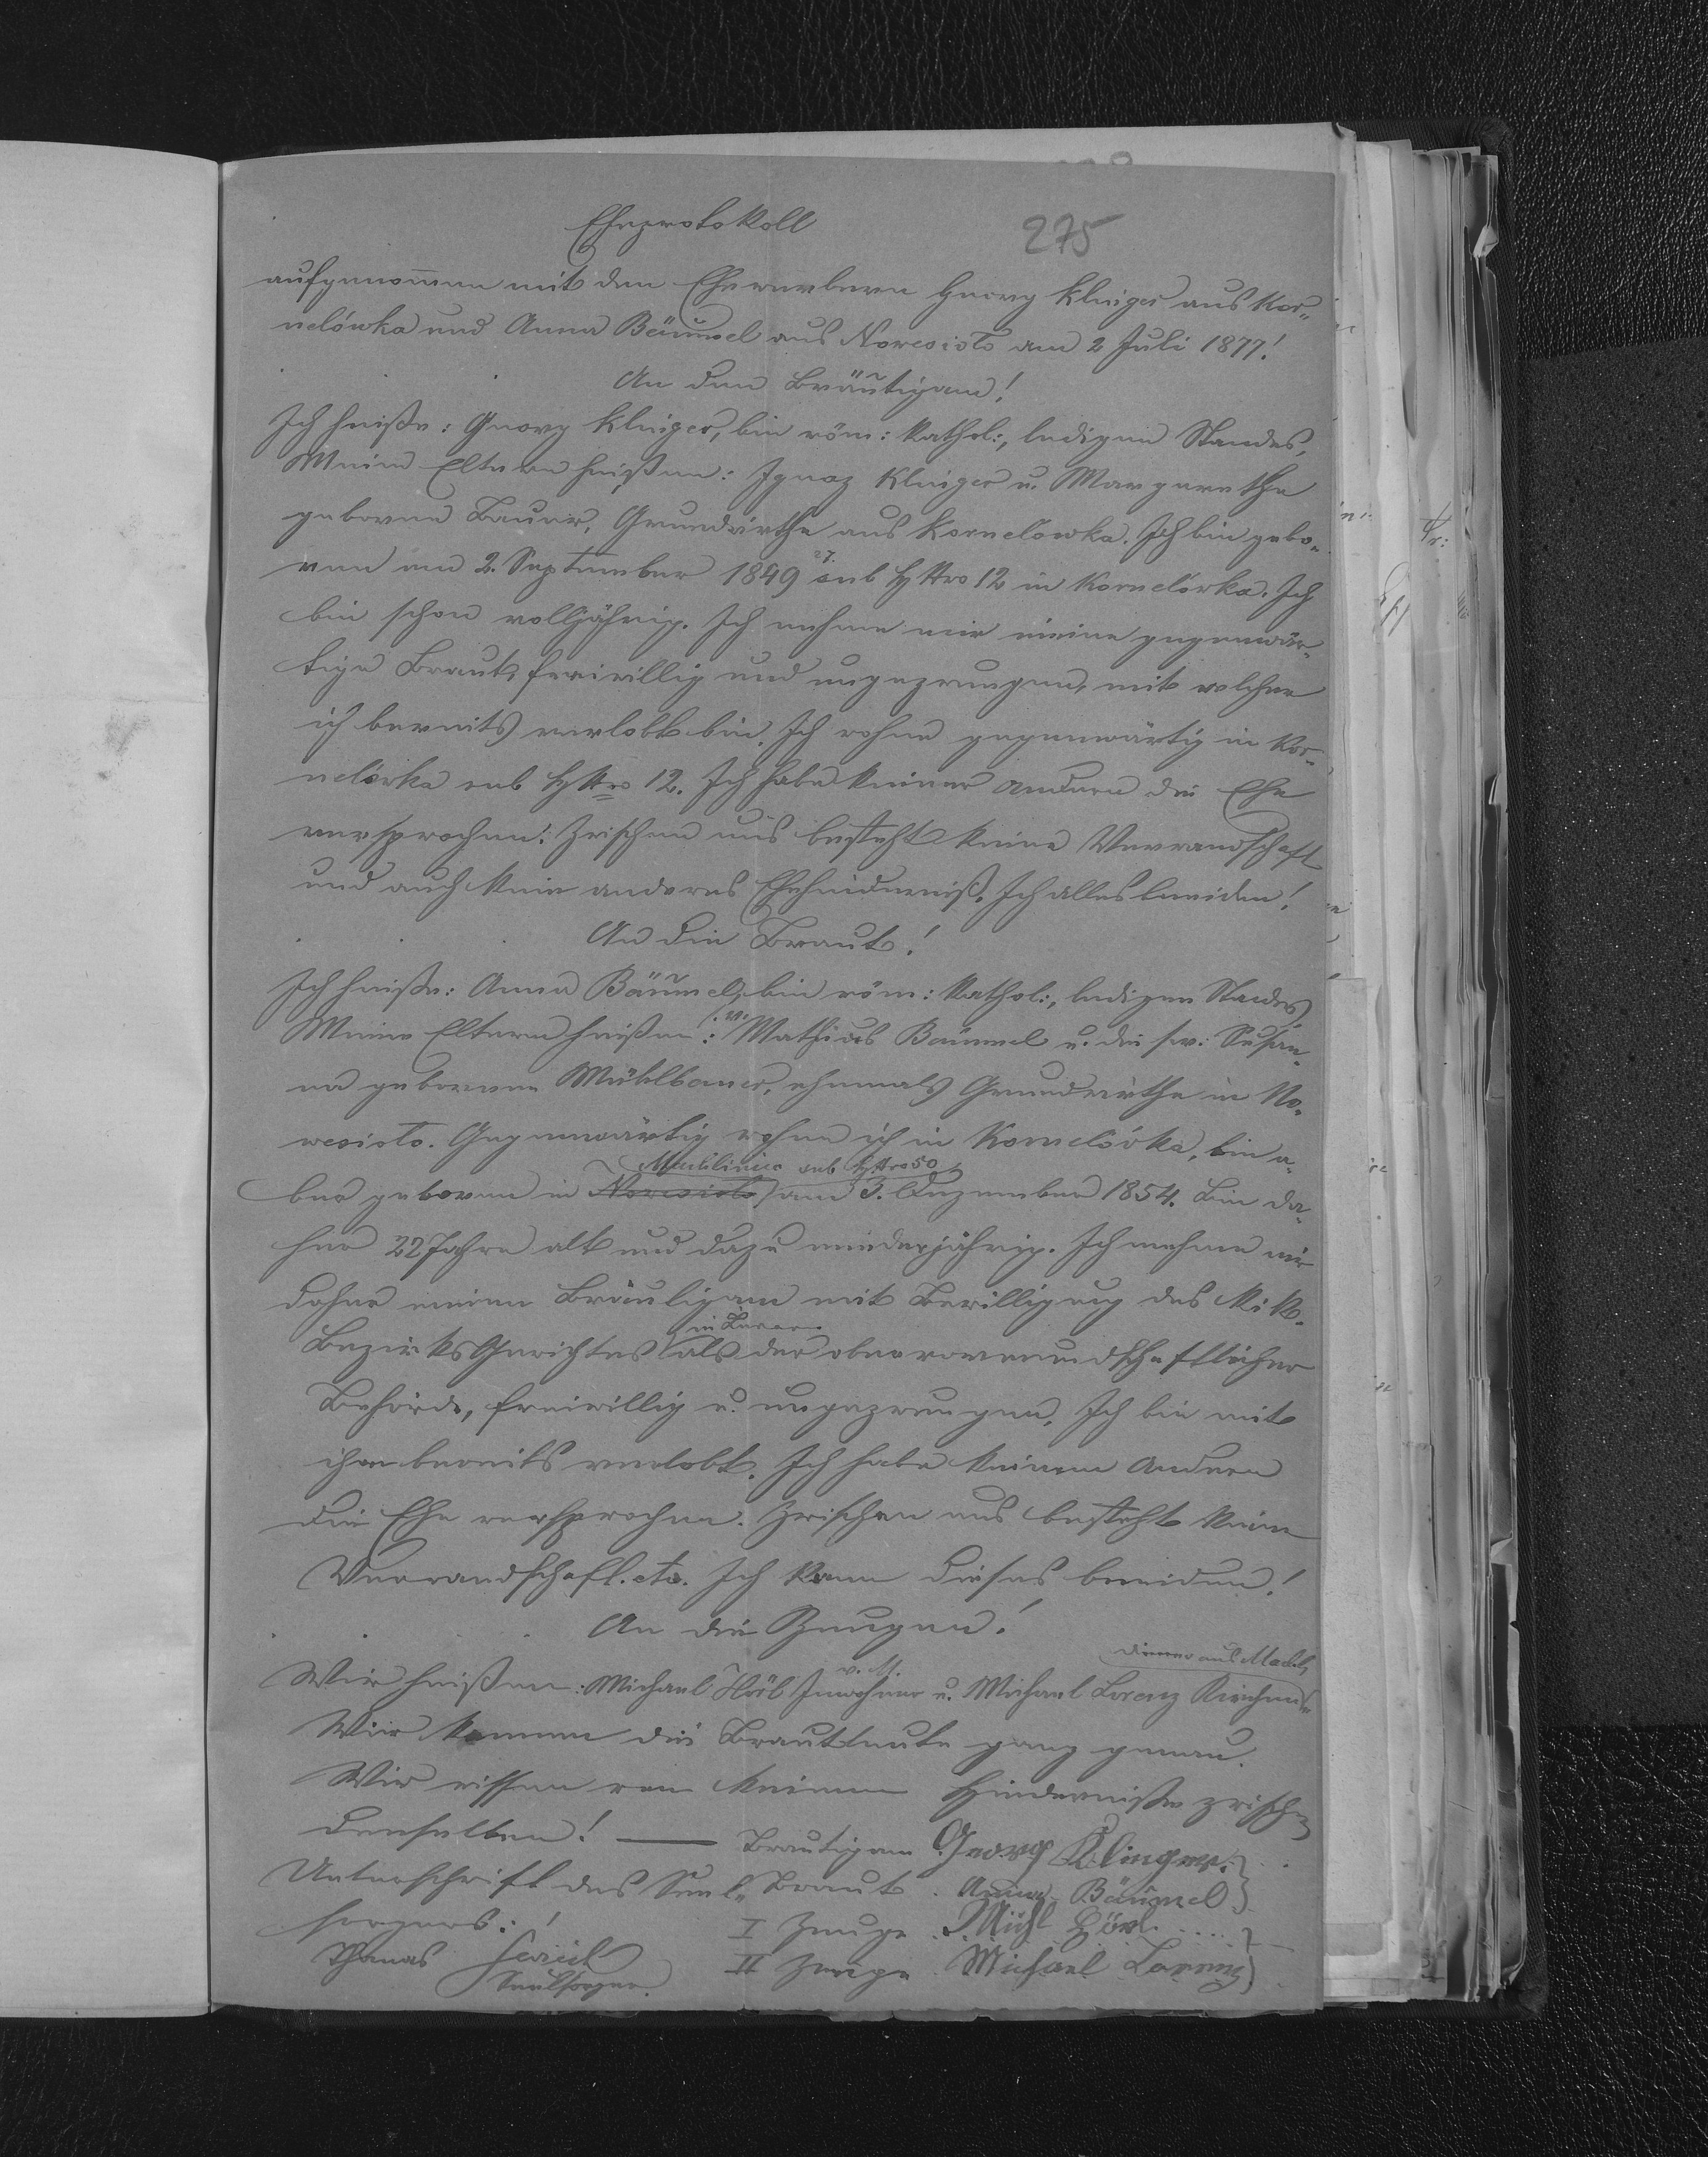 Eheprotokoll
275
aufgenom̄en mit den Ehewerbern Georg Klinger aus Kor„
nelówka und Anna Bäumel aus Nowesioło am 2 Juli 1877!
An den Bräutigam!
Ich heiße: Georg Klinger, bin röm: kathol:, ledigen Standes,
Meine Eltern heißen: Ignaz Klinger u. Margarethe
geborene Bauer, Grundwirthe aus Kornelówka. Ich bin gebo„
ren am 2. September 1849 sub HNro 12 in Kornelówka. Ich
bin schon volljährig. Ich nehme mir meine gegenwär„
tige Braut, freiwillig und ungezwungen, mit welcher
ich bereits verlobt bin. Ich wohne gegenwärtig in Kor„
nelówka sub HNro 12. Ich habe keiner andern die Ehe
versprochen! Zwischen uns besteht keine Verwandschaft
und auch kein anderes Ehehinderniß. Ich alles beeiden!
An die Braut!
Ich heiße: Anna Bäumel, bin röm: kathol:, ledigen Standes
Meine Eltern heißen: Mathias Bäumel u. die sel: Susan„
na geborene Mühlbauer, ehemals Grundwirthe in No„
wesioło. Gegenwärtig wohne ich in Kornelówka, bin a„
Machliniec sub HNro 50
ber geboren in Nowesioło am 3. Dezember 1854. Bin da„
her 22 Jahre alt und dazu minderjährig. Ich nehme mir
daher meinen Bräutigam mit Bewilligung des k: k.
Bezirks Gerichtes als der obervormundschaftlicher
Behörde, freiwillig u. ungezwungen. Ich bin mit
ihm bereits verlobt. Ich habe keinem Andern
die Ehe versprochen. Zwischen uns besteht keine
Verwandschaft. etc. Ich kann dieses beeiden!
An die Zeugen!
diener aus Machl,
Wir heißen: Michael Hörl Inwohner v. M. u. Michael Lorenz Kirchen„
Wir kennen die Brautleute ganz genau.
Wir wissen von keinem Hinderniße zwischen
denselben! — Brautigam Georg Klinger.
Unterschrift des Seel„ Braut. Anna Bäumel
sorgers:! I Zeuge Michl Hörl
Thomas II Zeuge Michael Lorenz
Seelsorger.